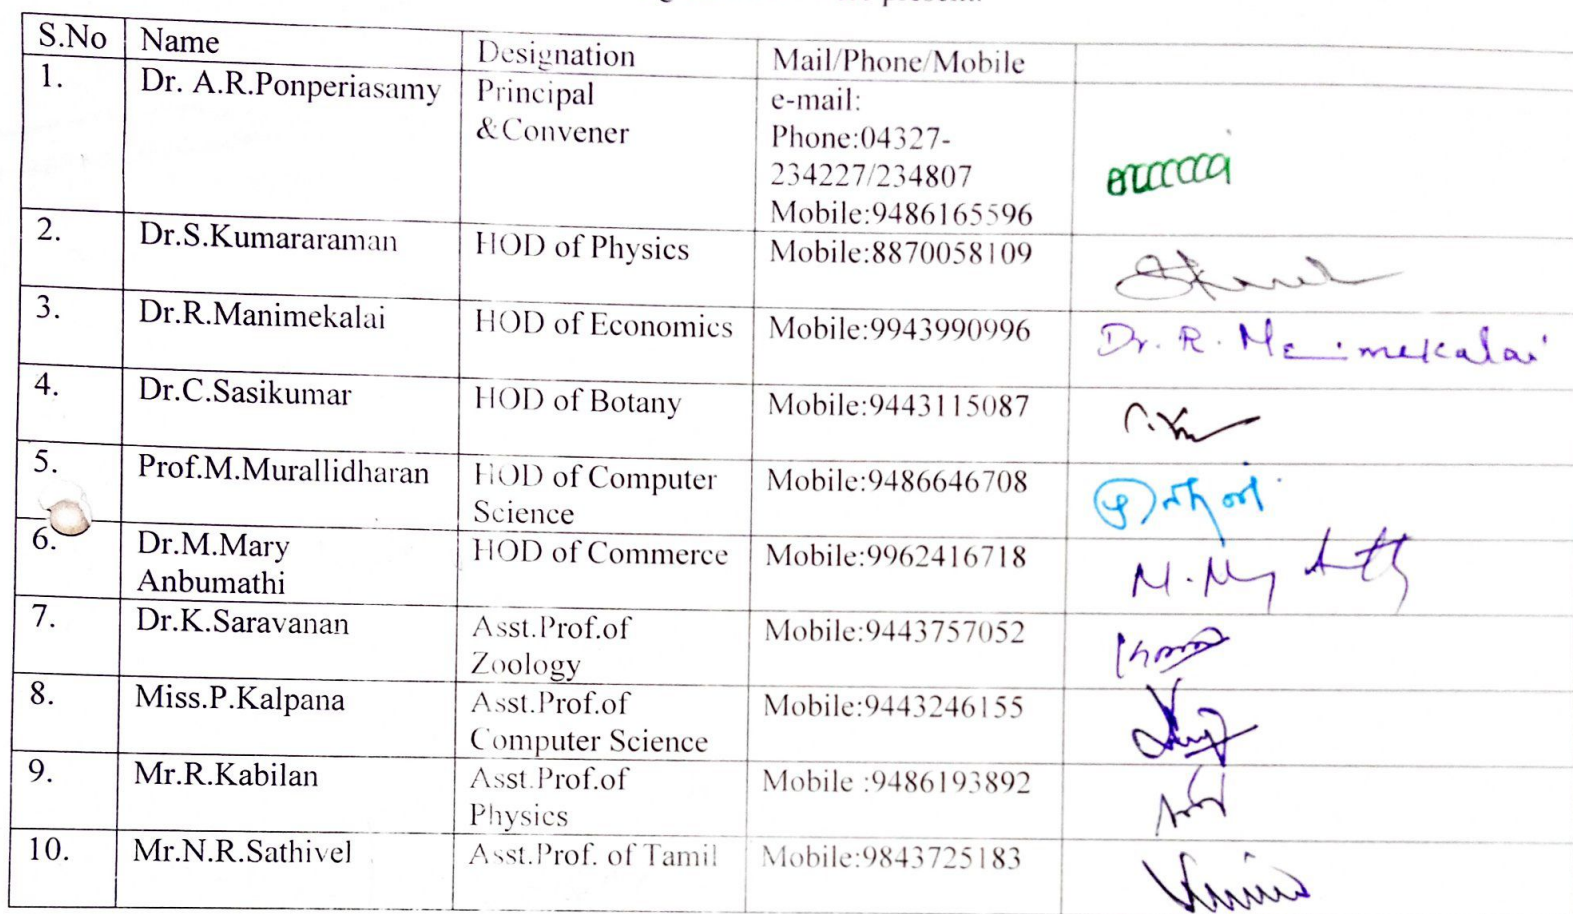 present.
S.No Name Designation Mail/Phone/Mobile
1. Dr. A.R.Ponperiasamy Principal e-mail:
&Convener Phone:04327-
234227/234807
Mobile:9486165596
2. Dr.S.Kumararaman HOD of Physics Mobile:8870058109
3. Dr.R.Manimekalai HOD of Economics Mobile:9943990996 Dr. R. Manimekalai
4. Dr.C.Sasikumar HOD of Botany Mobile:9443115087
5. Prof.M.Murallidharan HOD of Computer Mobile:9486646708
Science
6. Dr.M.Mary HOD of Commerce Mobile:9962416718
Anbumathi
7. Dr.K.Saravanan Asst.Prof.of Mobile:9443757052
Zoology
8. Miss.P.Kalpana Asst.Prof.of Mobile:9443246155
Computer Science
9. Mr.R.Kabilan Asst.Prof.of Mobile :9486193892
Physics
10. Mr.N.R.Sathivel Asst.Prof. of Tamil Mobile:9843725183